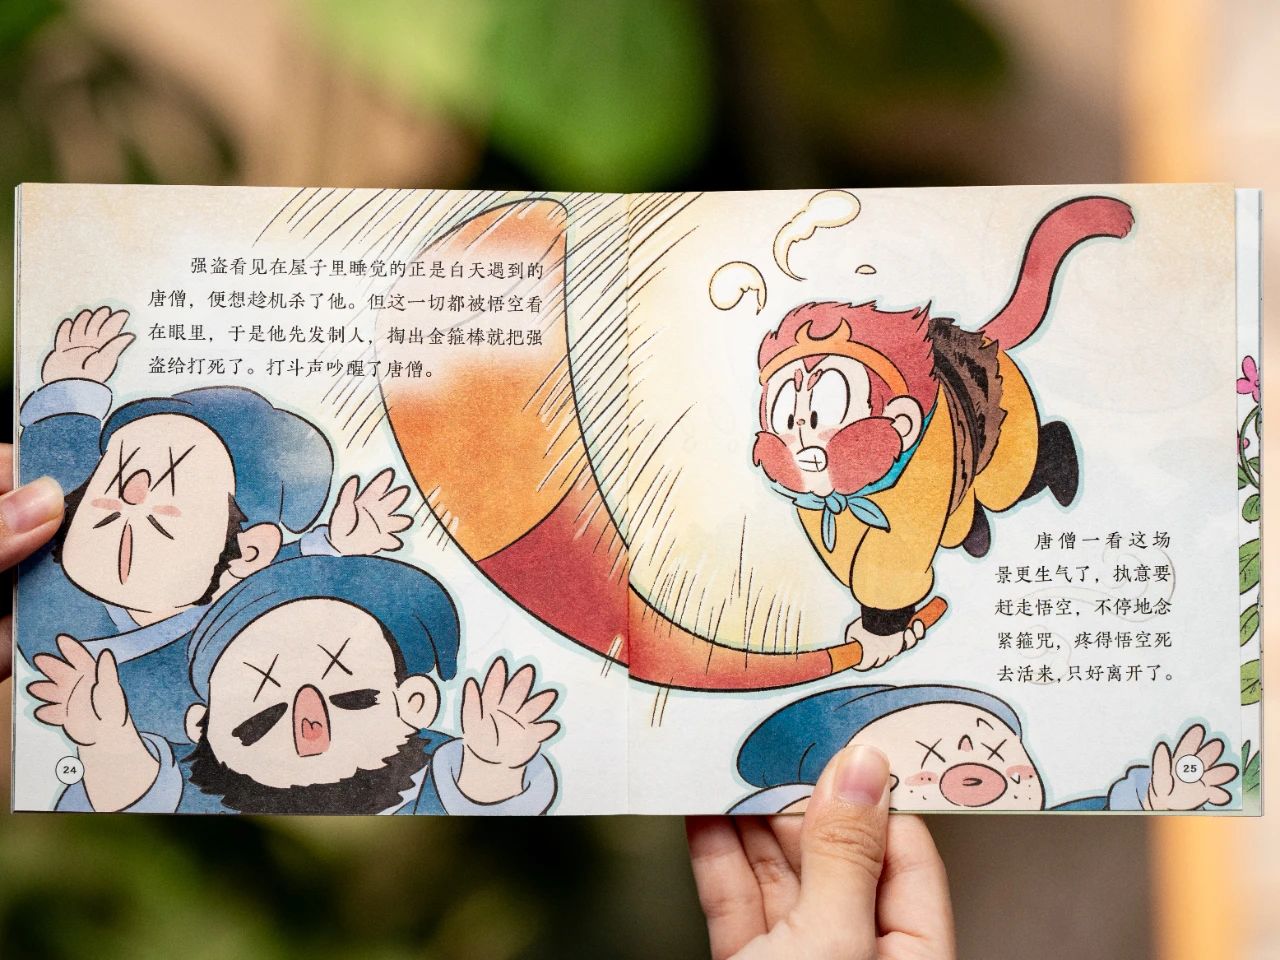 强盗看见在屋子里睡觉的正是白天遇到的
唐僧，便想趁机杀了他。但这一切都被悟空看
在眼里，于是他先发制人，掏出金箍棒就把强
盗给打死了。打斗声吵醒了唐僧。
24
唐僧一看这场
景更生气了，执意要
赶走悟空，不停地念
紧箍咒，疼得悟空死
去活来，只好离开了。
25